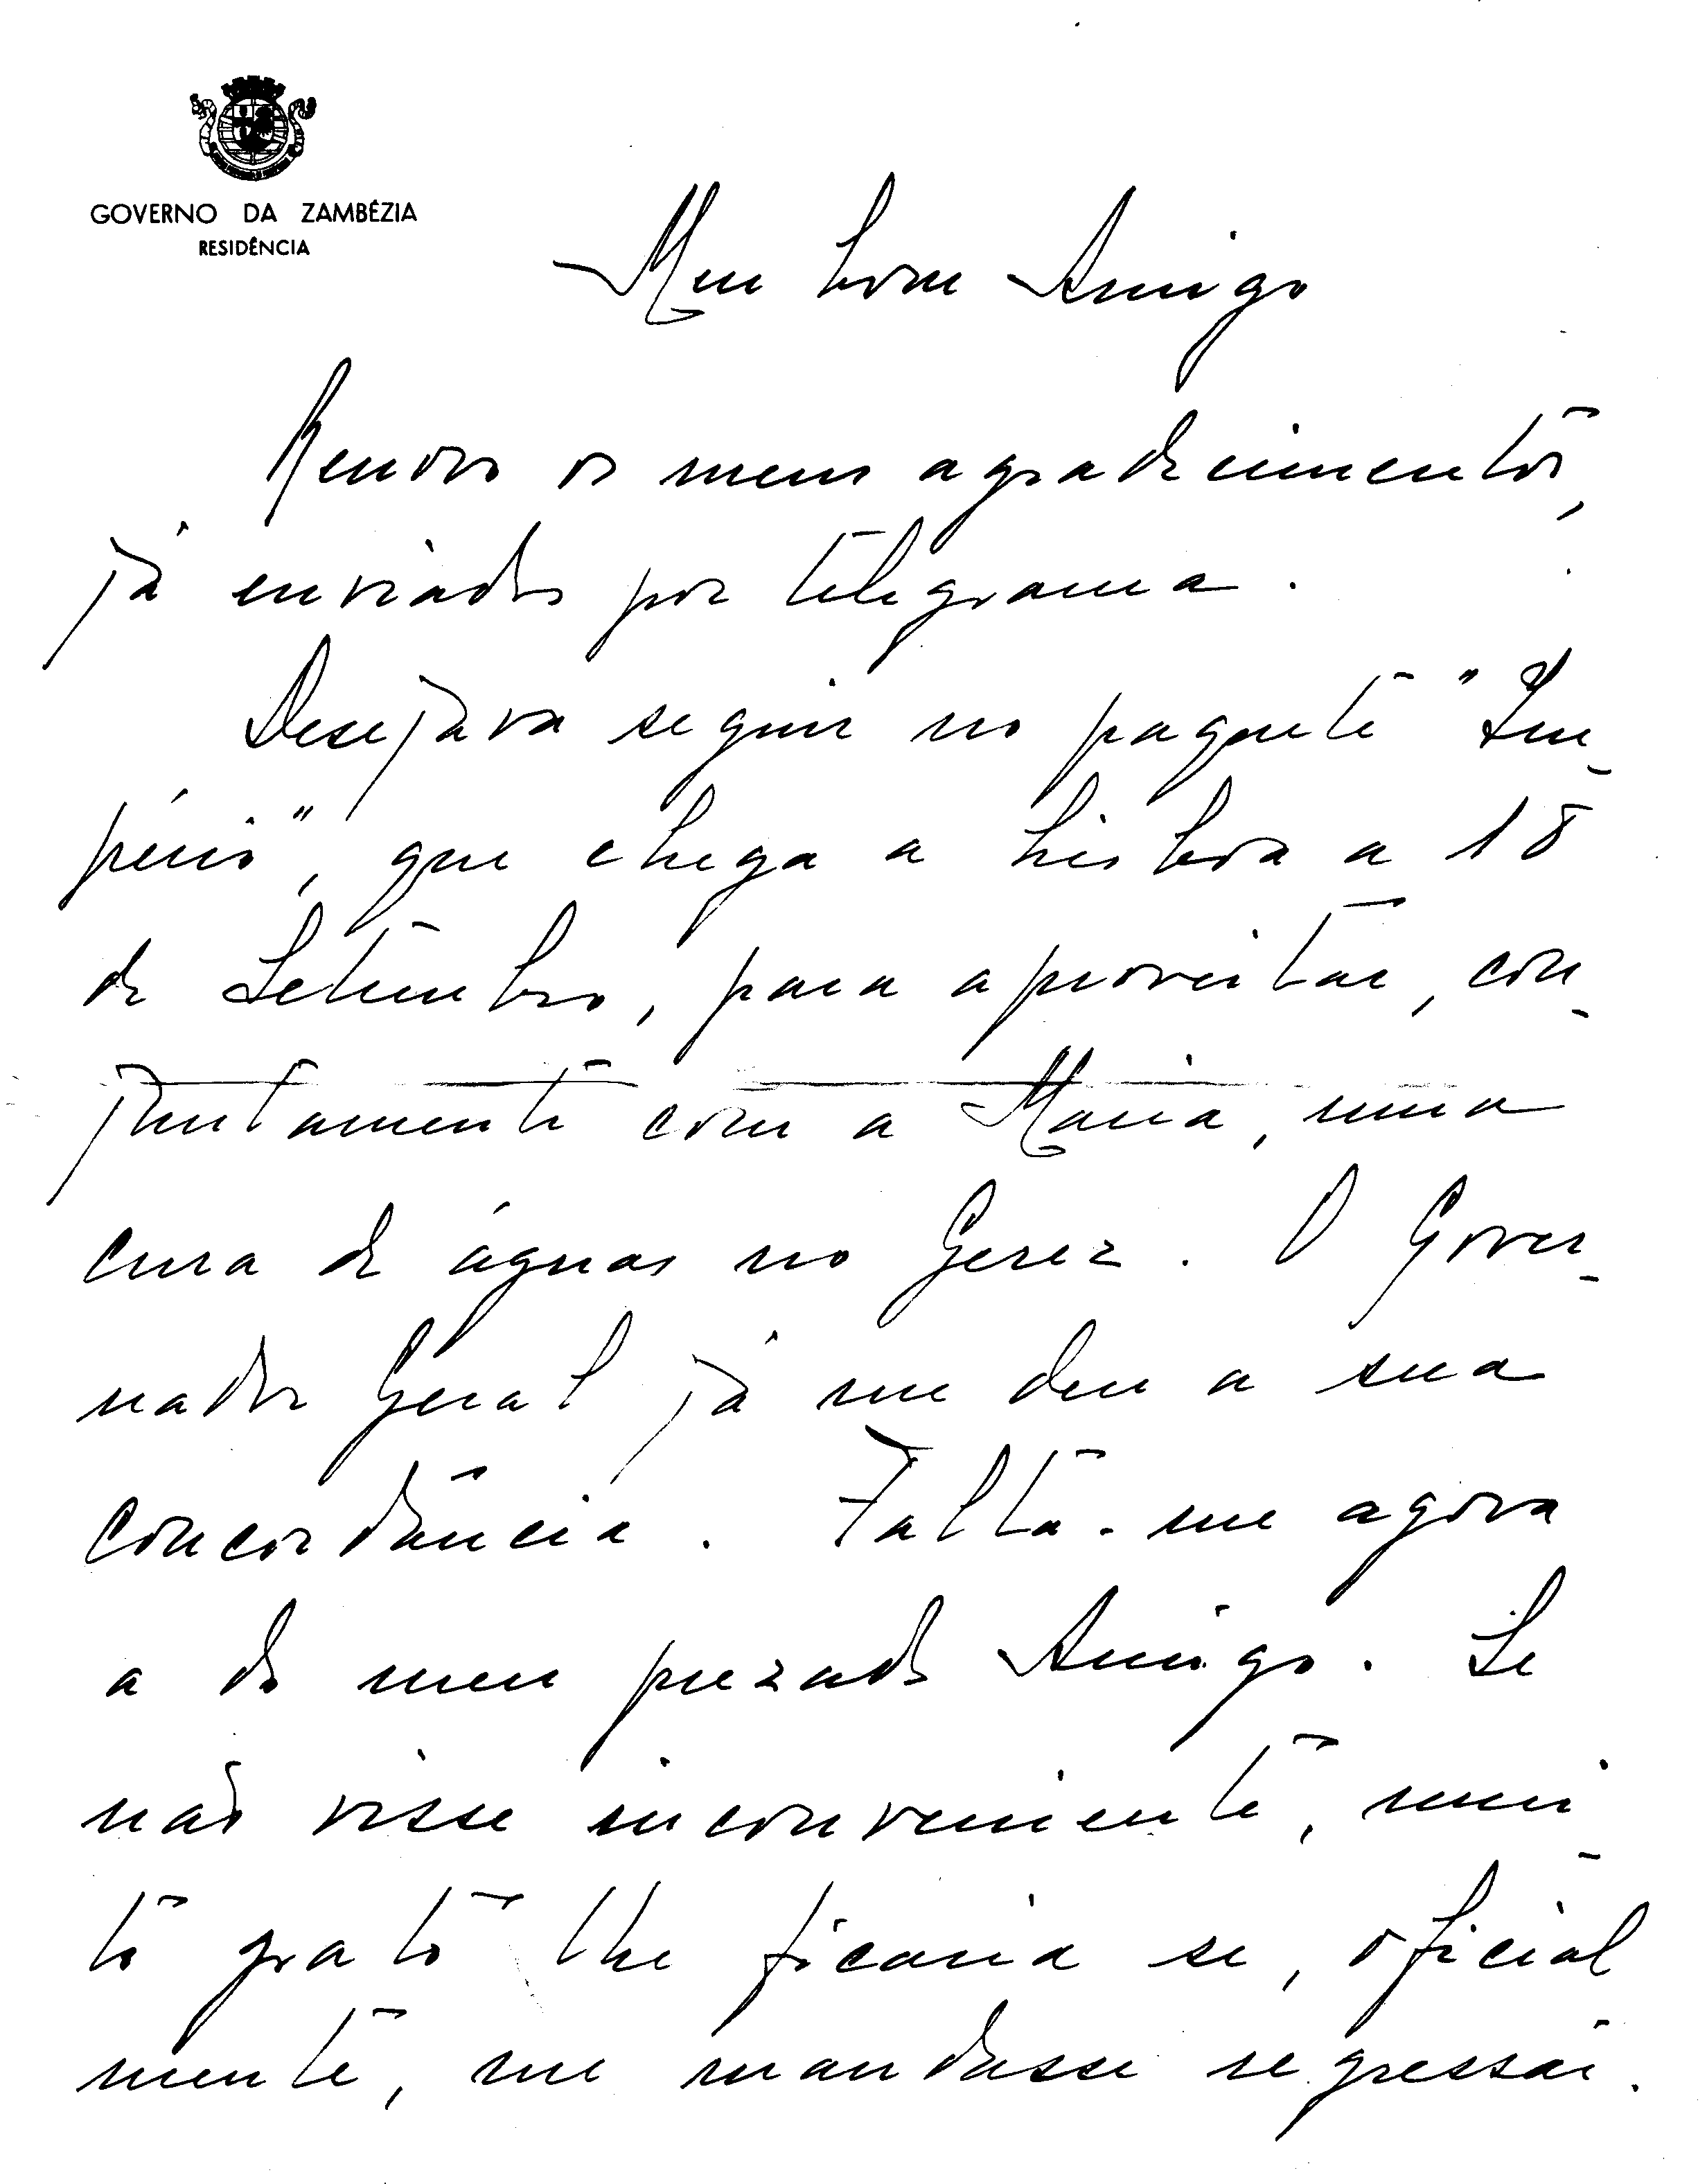 GOVERNO DA ZAMBÉZIA
RESIDÊNCIA
Meu bom Amigo
Renovo os meus agradecimentos,
já enviados por telegrama.
Desejava seguir no paquete "Im-
pério", que chega a Lisboa a 18
de Setembro, para aproveitar, con-
juntamente com a Maria, uma
cura de águas no Gerez. O Gover-
nador Geral já me deu a sua
concordância. Falta-me agora
a do meu prezado Amigo. Se
não visse inconveniente, mui-
to grato lhe ficaria se, oficial
mente, me mandasse regressar.